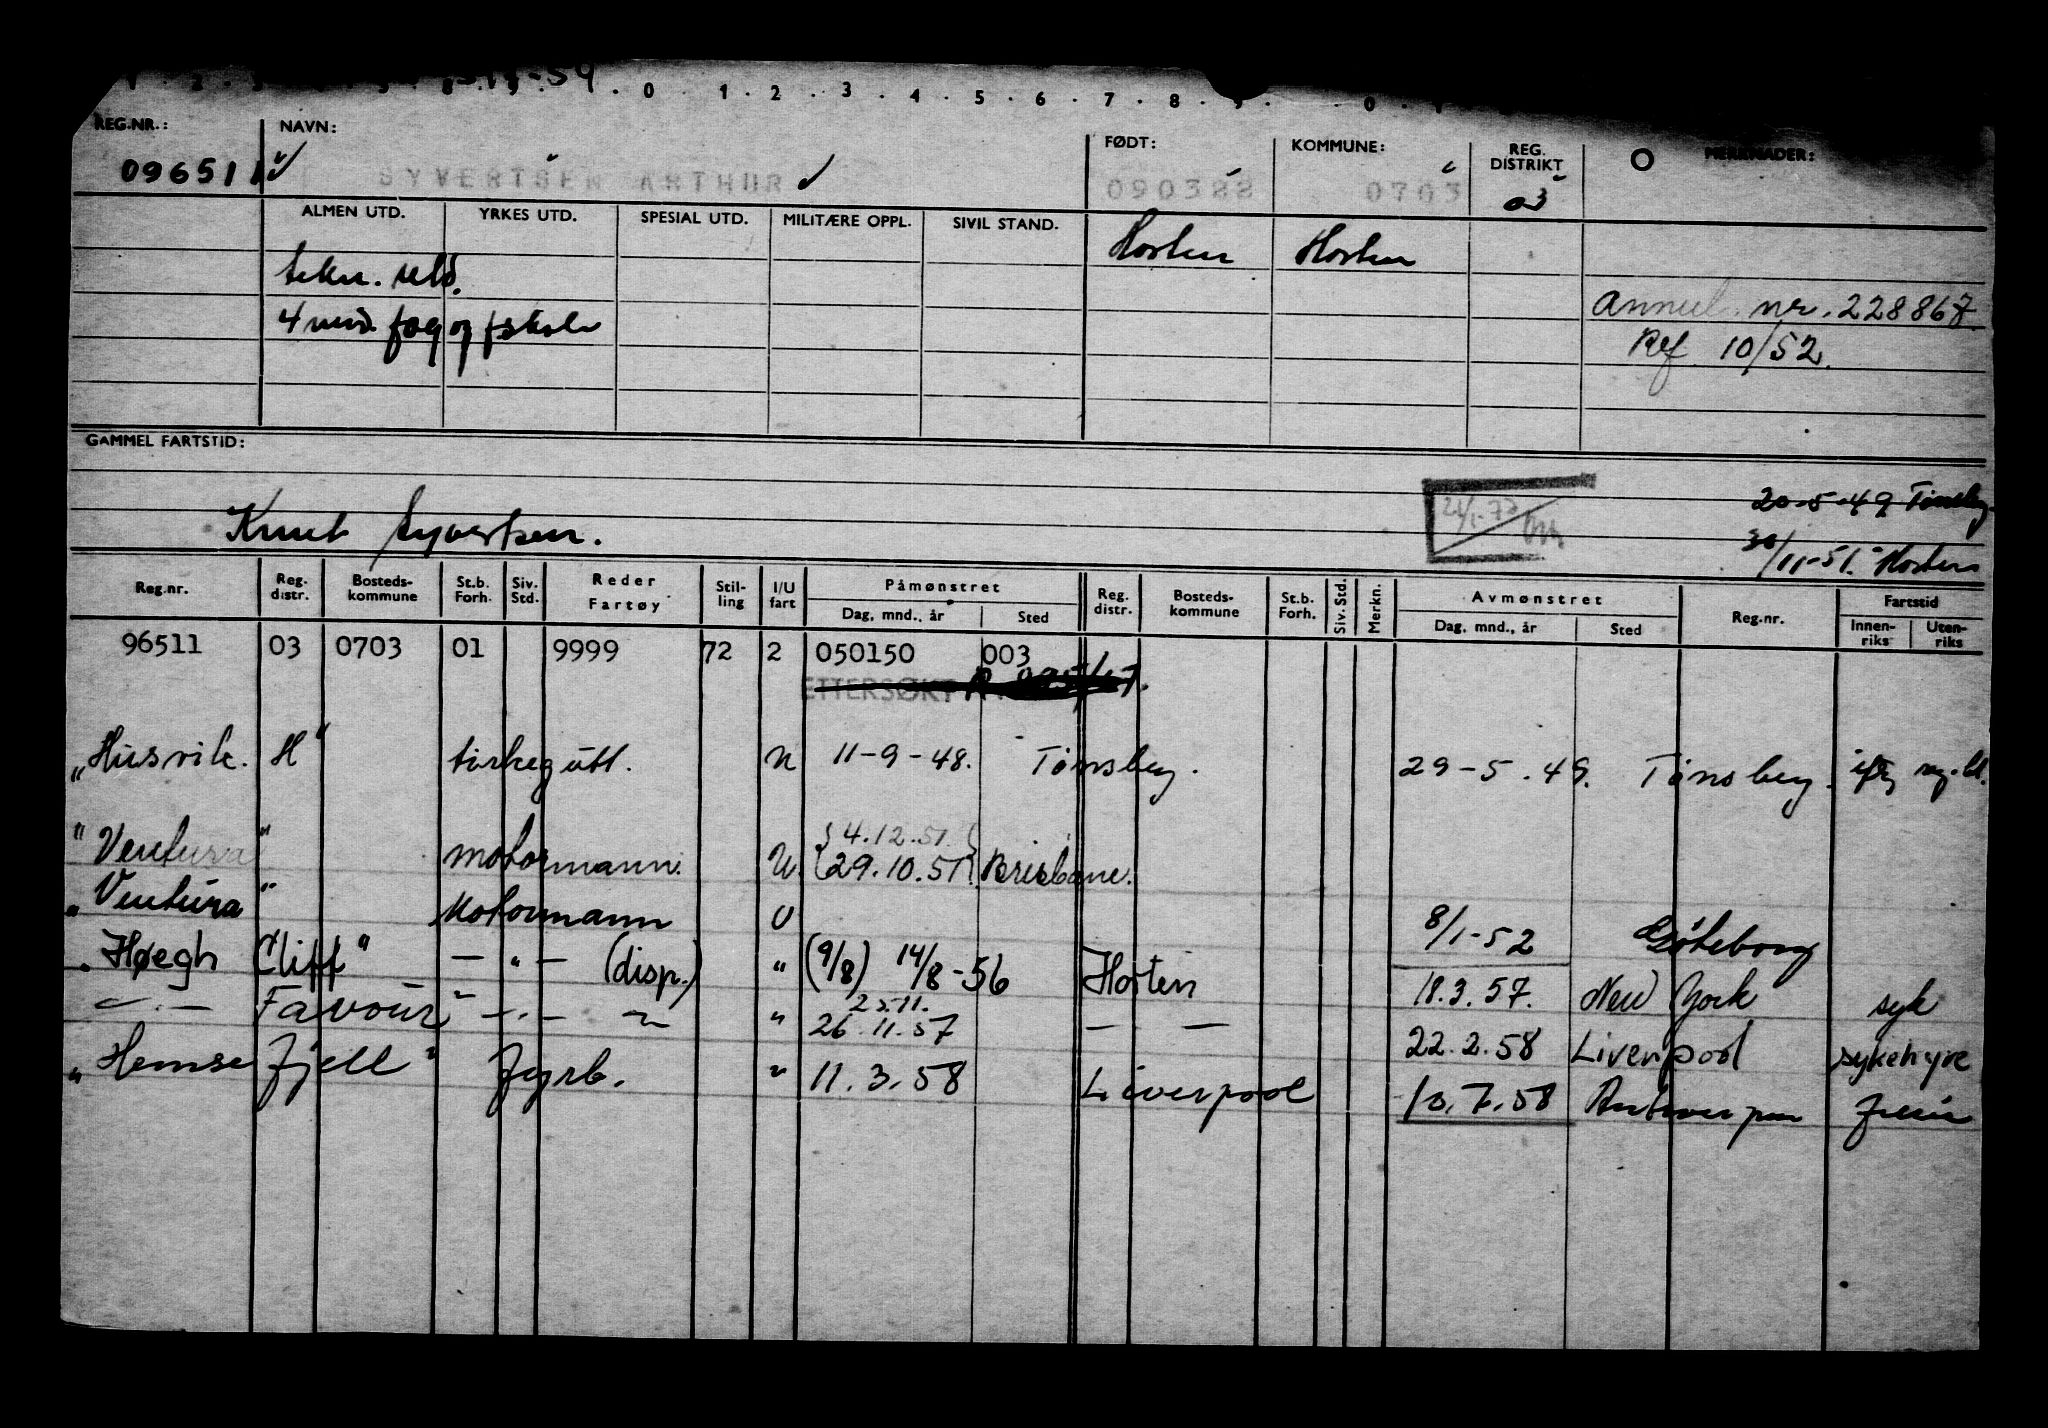 0 . 1 . 2 . 3 . 4 . 5 . 6 . 7 . 8 . 9 . 0
REG.NR.: NAVN: FØDT: KOMMUNE: REG. DISTRIKT MERKNADER:
096511 SYVERTSEN ARTHUR 090388 0703 03
ALMEN UTD. YRKES UTD. SPESIAL UTD. MILITÆRE OPPL. SIVIL STAND.
Horten Horten
tekn.
Annul. nr. 228867
4 mnd. fag og
Ref 10/52.
GAMMEL FARTSTID:
20-5-49 Tønsberg
Knut Syvertsen.
30/11-51. Horten
Reg.nr. Reg. distr. Bosteds-kommune St.b. Forh. Siv. Std. Reder Fartøy Stil-ling I/U fart Påmønstret Dag, mnd., år Sted Reg. distr. Bosteds-kommune St.b. Forh. Siv. Std. Merkn. Avmønstret Dag, mnd., år Sted Reg.nr. Fartstid Innen-riks Uten-riks
96511 03 0703 01 9999 72 2 050150 003
ETTERSØKT
„Husvik. H" U 11-9-48. Tønsberg. 29-5.49. Tønsberg.
"Ventura" motormann. U. {4.12.51} {29.10.51} Brisbane.
„Ventura" Motormann U 8/1-52 Göteborg
„Høegh Cliff" — " — (disp.) " (9/8) 14/8-56 Horten 18.3.57. New York syk
— " — Favour" — " — " 25.11. 26.11.57 — — 22.2.58 Liverpool sykehyre
„Hemsefjell" fyrb. " 11.3.58 Liverpool 10.7.58 Antwerpen ferie